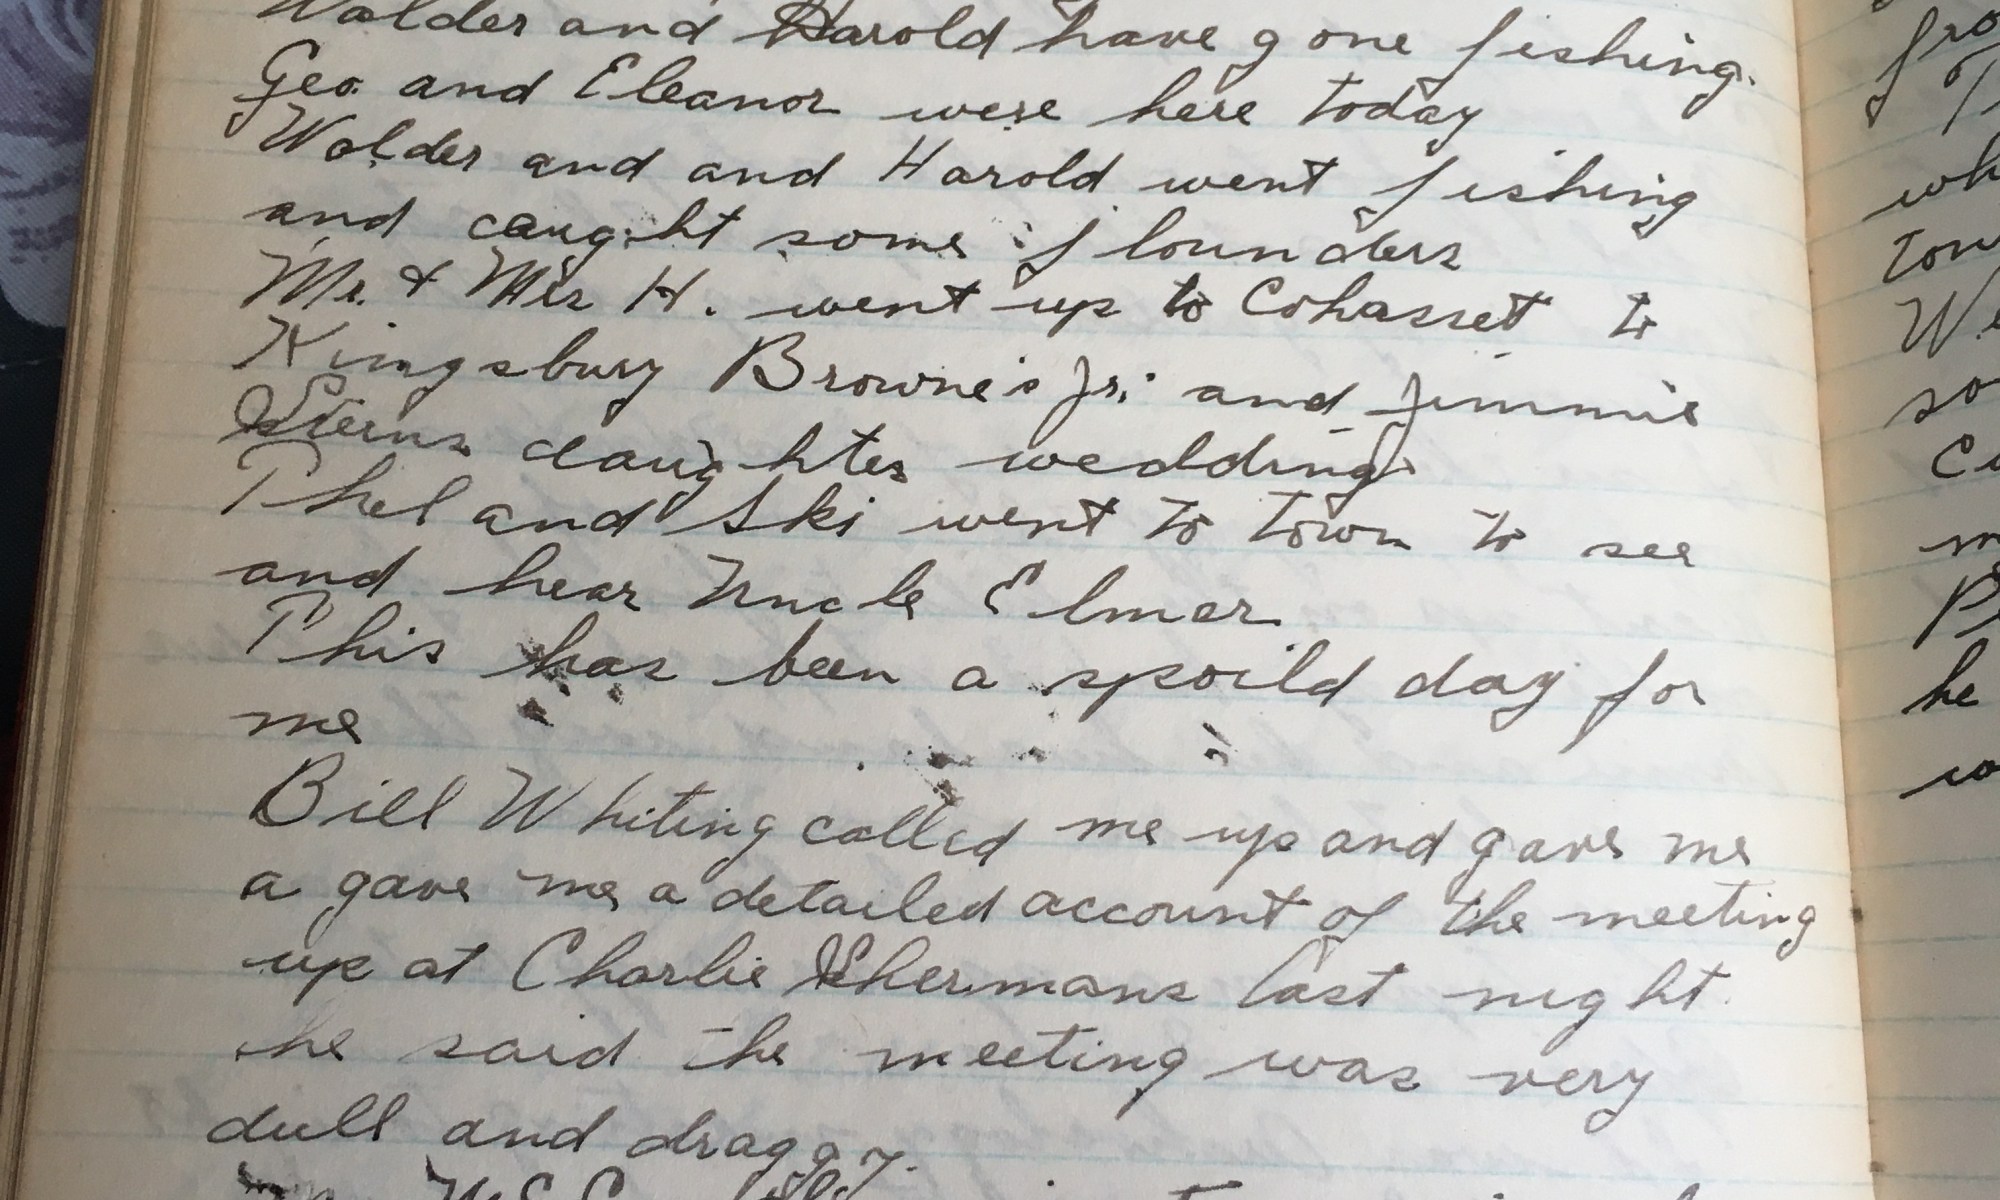 Walder and Harold have gone fishing.
Geo. and Eleanor were here today
Walder and and Harold went fishing
and caught some flounders
Mr. & Mrs H. went up to Cohasset to
Kingsbury Browne's Jr. and Jimmie
Sterns daughter wedding.
Thel and Ski went to town to see
and hear Uncle Elmer.
This has been a spoild day for
me
Bill Whiting called me up and gave me
a gave me a detailed account of the meeting
up at Charlie Shermans last night.
he said the meeting was very
dull and draggy.
fro
wh
tow
We
so
he